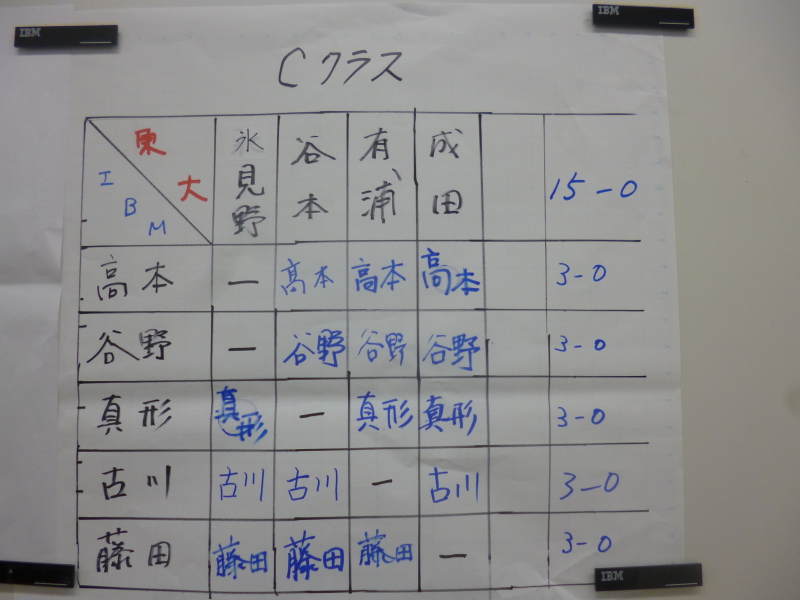 IBM
IBM
Cクラス
東大 IBM 氷見野 谷本 有浦 成田 15-0
高本 — 高本 高本 高本 3-0
谷野 — 谷野 谷野 谷野 3-0
真形 真形 — 真形 真形 3-0
古川 古川 古川 — 古川 3-0
藤田 藤田 藤田 藤田 — 3-0
IBM